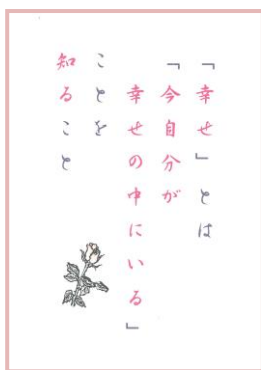 「幸せ」とは
「今自分が
幸せの中にいる」
ことを
知ること